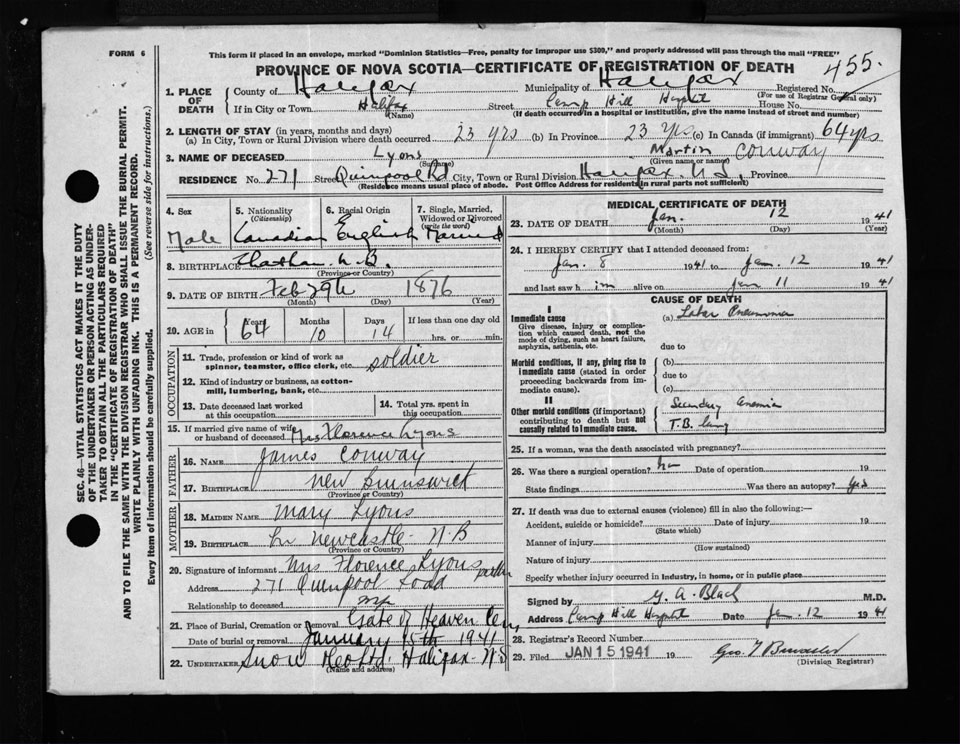 FORM 6
This form if placed in an envelope, marked "Dominion Statistics—Free, penalty for improper use $300," and properly addressed will pass through the mail "FREE"
PROVINCE OF NOVA SCOTIA—CERTIFICATE OF REGISTRATION OF DEATH
455.
1. PLACE OF DEATH County of Halifax Municipality of Halifax Registered No.
(For use of Registrar General only)
If in City or Town Halifax Street Camp Hill Hospital House No.
(Name) (If death occurred in a hospital or institution, give the name instead of street and number)
2. LENGTH OF STAY (in years, months and days)
(a) In City, Town or Rural Division where death occurred 23 yrs (b) In Province 23 yrs (c) In Canada (if immigrant) 64 yrs
3. NAME OF DECEASED Lyons Martin Conway
(Surname) (Given name or names)
RESIDENCE No. 271 Street Quinpool Rd City, Town or Rural Division Halifax N.S. Province
(Residence means usual place of abode. Post Office Address for residents in rural parts not sufficient)
4. Sex Male
5. Nationality (Citizenship) Canadian
6. Racial Origin English
7. Single, Married, Widowed or Divorced (write the word) Married
8. BIRTHPLACE Chatham N.B.
(Province or Country)
9. DATE OF BIRTH Feb 29th 1876
(Month) (Day) (Year)
10. AGE in Years 64 Months 10 Days 14 If less than one day old hrs. or min.
OCCUPATION
11. Trade, profession or kind of work as spinner, teamster, office clerk, etc. soldier
12. Kind of industry or business, as cotton-mill, lumbering, bank, etc.
13. Date deceased last worked at this occupation
14. Total yrs. spent in this occupation
15. If married give name of wife or husband of deceased Mrs Florence Lyons
FATHER
16. NAME James Conway
17. BIRTHPLACE New Brunswick
(Province or Country)
MOTHER
18. MAIDEN NAME Mary Lyons
19. BIRTHPLACE Newcastle N.B
(Province or Country)
20. Signature of informant Mrs Florence Lyons
Address 271 Quinpool Road
Relationship to deceased wife
21. Place of Burial, Cremation or Removal Gate of Heaven Cem
Date of burial or removal January 15th 1941
22. UNDERTAKER Snow & Co Ltd. Halifax N.S
(Name and address)
MEDICAL CERTIFICATE OF DEATH
23. DATE OF DEATH Jan. 12 1941
(Month) (Day) (Year)
24. I HEREBY CERTIFY that I attended deceased from:
Jan. 8 1941 to Jan. 12 1941
and last saw him alive on Jan 11 1941
CAUSE OF DEATH
I
Immediate cause (a) Lobar Pneumonia
Give disease, injury or complication which caused death, not the mode of dying, such as heart failure, asphyxia, asthenia, etc.
due to
Morbid conditions, if any, giving rise to immediate cause (stated in order proceeding backwards from immediate cause).
(b)
due to
(c)
II
Other morbid conditions (if important) contributing to death but not causally related to immediate cause.
Secondary Anemia
T.B. lung
25. If a woman, was the death associated with pregnancy?
26. Was there a surgical operation? no Date of operation 19
State findings Was there an autopsy? Yes
27. If death was due to external causes (violence) fill in also the following:—
Accident, suicide or homicide? Date of injury 19
(State which)
Manner of injury
(How sustained)
Nature of injury
Specify whether injury occurred in industry, in home, or in public place
Signed by G. A. Black M.D.
Address Camp Hill Hospital Date Jan. 12 1941
28. Registrar's Record Number
29. Filed JAN 15 1941 19 Geo.
(Division Registrar)
SEC. 46—VITAL STATISTICS ACT MAKES IT THE DUTY
OF THE UNDERTAKER OR PERSON ACTING AS UNDER-
TAKER TO OBTAIN ALL THE PARTICULARS REQUIRED
IN THE "CERTIFICATE OF REGISTRATION OF DEATH"
AND TO FILE THE SAME WITH THE DIVISION REGISTRAR WHO SHALL ISSUE THE BURIAL PERMIT.
WRITE PLAINLY WITH UNFADING INK. THIS IS A PERMANENT RECORD.
Every item of information should be carefully supplied. (See reverse side for instructions.)